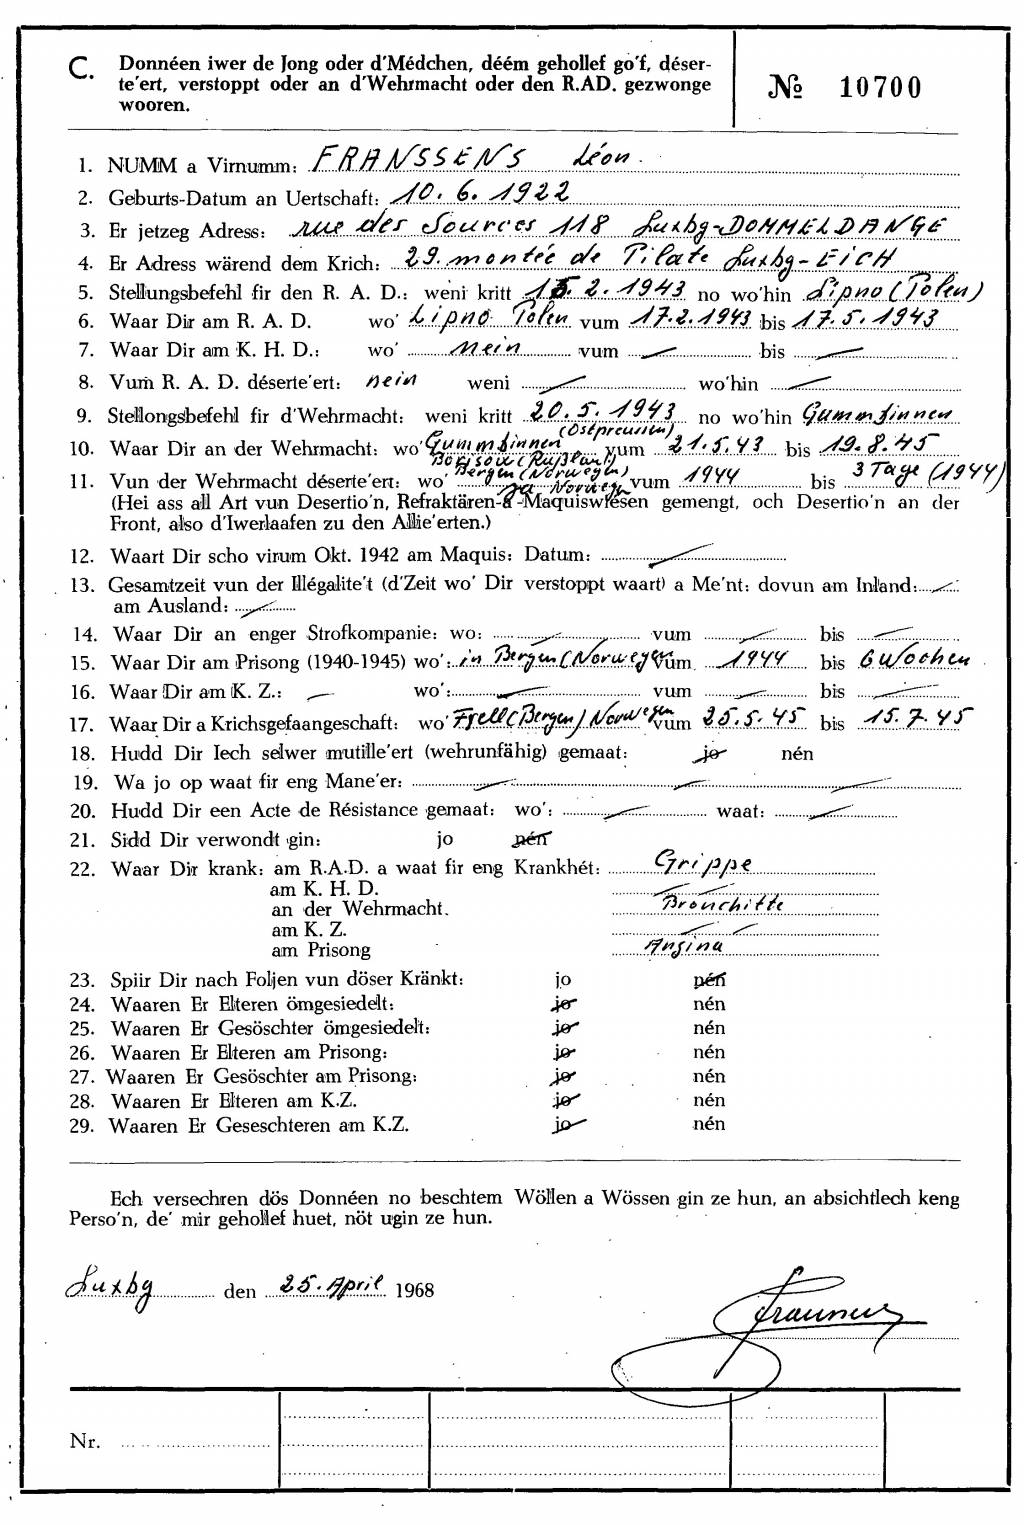 C. Donnéen iwer de Jong oder d'Médchen, déém gehollef go'f, déser-
te'ert, verstoppt oder an d'Wehrmacht oder den R.AD. gezwonge
wooren.
№ 10700
1. NUMM a Virnumm: FRANSSENS Léon.
2. Geburts-Datum an Uertschaft: 10. 6. 1922
3. Er jetzeg Adress: rue des Sources 118 Luxbg-DOMMELDANGE
4. Er Adress wärend dem Krich: 29. montée de Pilate Luxbg-EICH
5. Stellungsbefehl fir den R. A. D.: weni kritt 15.2.1943 no wo'hin Lipno (Polen)
6. Waar Dir am R. A. D. wo' Lipno Polen vum 17.2.1943 bis 17.5.1943
7. Waar Dir am K. H. D.: wo' nein vum — bis —
8. Vum R. A. D. déserte'ert: nein weni — wo'hin —
9. Stellongsbefehl fir d'Wehrmacht: weni kritt 20.5.1943 no wo'hin Gummbinnen
(Ostpreussen)
10. Waar Dir an der Wehrmacht: wo' Gummbinnen vum 21.5.43 bis 19.8.45
Borisow (Rußland)
Bergen (Norwegen)
11. Vun der Wehrmacht déserte'ert: wo' ja Norwegen vum 1944 bis 3 Tage (1944)
(Hei ass all Art vun Desertio'n, Refraktären-a -Maquiswiesen gemengt, och Desertio'n an der
Front, also d'Iwerlaafen zu den Allie'erten.)
12. Waart Dir scho virum Okt. 1942 am Maquis: Datum: —
13. Gesamtzeit vun der Illégalite't (d'Zeit wo' Dir verstoppt waart) a Me'nt: dovun am Inland: —
am Ausland: —
14. Waar Dir an enger Strofkompanie: wo: — vum — bis —
15. Waar Dir am Prisong (1940-1945) wo': in Bergen (Norwegen vum 1944 bis 6 Wochen
16. Waar Dir am K. Z.: — wo': — vum — bis —
17. Waar Dir a Krichsgefaangeschaft: wo' Frell (Bergen) Norwegen vum 25.5.45 bis 15.7.45
18. Hudd Dir Iech selwer mutille'ert (wehrunfähig) gemaat: jo nén
19. Wa jo op waat fir eng Mane'er: —
20. Hudd Dir een Acte de Résistance gemaat: wo': — waat: —
21. Sidd Dir verwondt gin: jo nén
22. Waar Dir krank: am R.A.D. a waat fir eng Krankhét: Grippe
am K. H. D. —
an der Wehrmacht. Bronchitte
am K. Z. —
am Prisong Angina
23. Spiir Dir nach Foljen vun döser Kränkt: jo nén
24. Waaren Er Elteren ömgesiedelt: jo nén
25. Waaren Er Gesöschter ömgesiedelt: jo nén
26. Waaren Er Elteren am Prisong: jo nén
27. Waaren Er Gesöschter am Prisong: jo nén
28. Waaren Er Elteren am K.Z. jo nén
29. Waaren Er Geseschteren am K.Z. jo nén
Ech versechren dös Donnéen no beschtem Wöllen a Wössen gin ze hun, an absichtlech keng
Perso'n, de' mir gehollef huet, nöt ugin ze hun.
Luxbg den 25. April 1968
Nr.